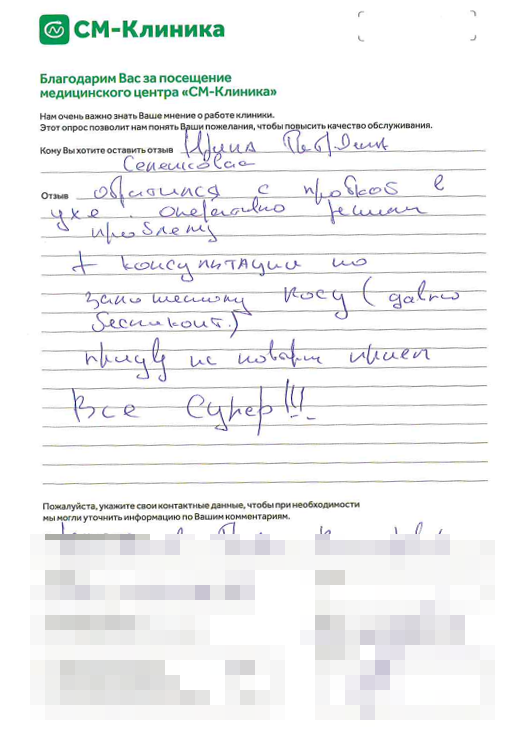 СМ-Клиника
Благодарим Вас за посещение
медицинского центра «СМ-Клиника»
Нам очень важно знать Ваше мнение о работе клиники.
Этот опрос позволит нам понять Ваши пожелания, чтобы повысить качество обслуживания.
Кому Вы хотите оставить отзыв Ирина
Отзыв обратился с пробкой в
ухе. оперативно решили
проблему
+ консультации по
заложенному носу (давно
беспокоит.)
приду на повторн прием
Все Супер!!!
Пожалуйста, укажите свои контактные данные, чтобы при необходимости
мы могли уточнить информацию по Вашим комментариям.